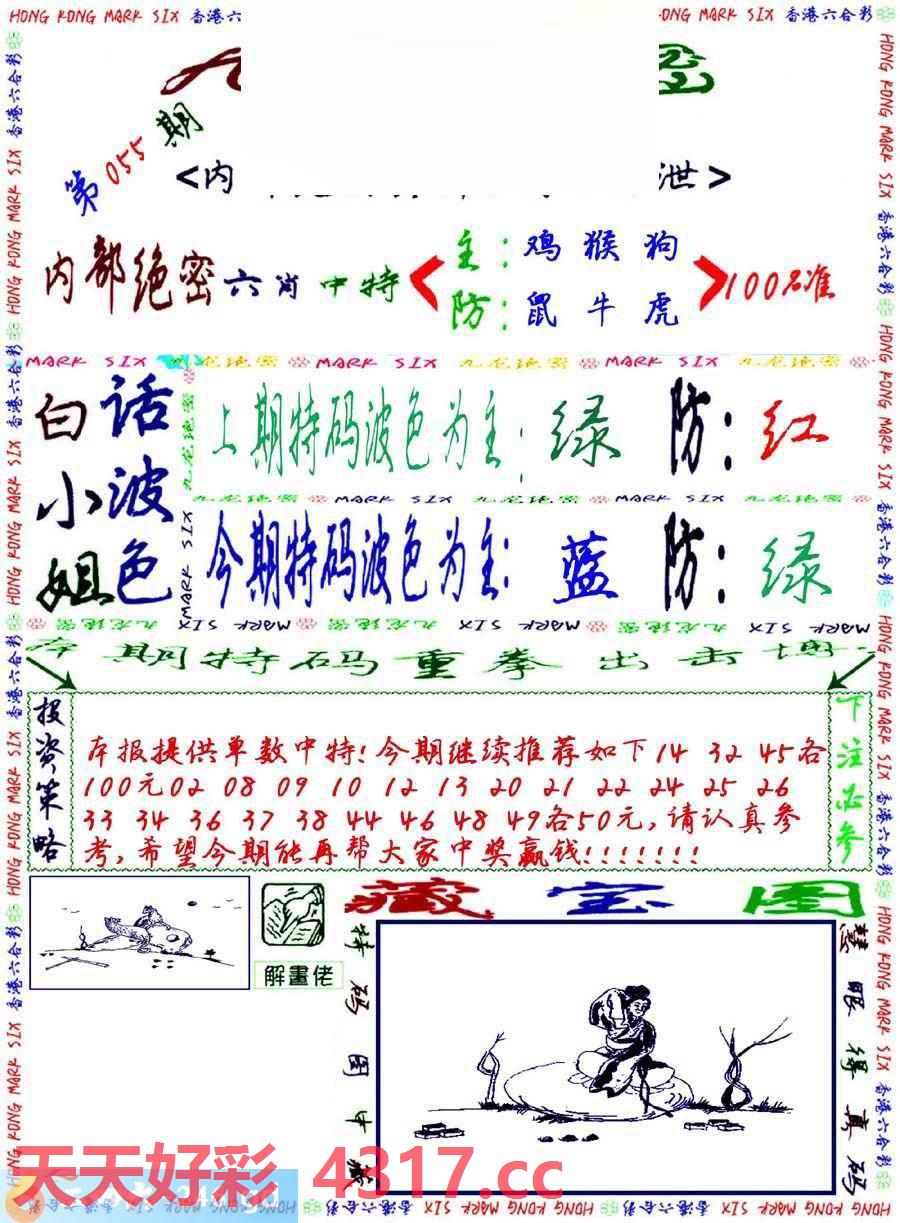 HONG KONG MARK SIX 香港六
ONG MARK SIX 香港六合彩
第055期
<内
泄>
内部绝密六肖中特
主:鸡猴狗
防:鼠牛虎
100%准
MARK SIX 九龙绝密 MARK SIX 九龙绝密 MARK SIX 九龙绝密
白小姐
话波色
上期特码波色为主:绿 防:红
九龙绝密 MARK SIX 九龙绝密 MARK SIX
今期特码波色为主:蓝 防:绿
九龙绝密 MARK SIX 九龙绝密 MARK SIX 九龙绝密 MARK SIX
本期特码重拳出击
投资策略
本报提供单数中特!今期继续推荐如下14 32 45各
100元02 08 09 10 12 13 20 21 22 24 25 26
33 34 36 37 38 44 46 48 49各50元,请认真参
考,希望今期能再帮大家中奖赢钱!!!!!!!
下注必参
解畫佬
藏宝图
特码图中藏
慧眼得真码
天天好彩 4317.cc
HONG KONG MARK SIX 香港六合彩